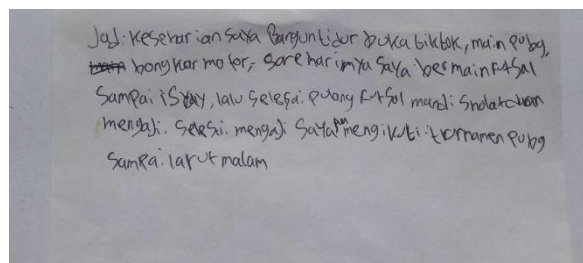 Jad: keseharian saya Bangun tidur buka tiktok, main pubg,
bongkar motor, sore harinya saya bermain futsal
Sampai isyay, lalu selesai. pulang futsol mandi sholat dan
mengaji. selesi. mengaji saya pun mengikuti turnamen pubg
Sampai larut malam